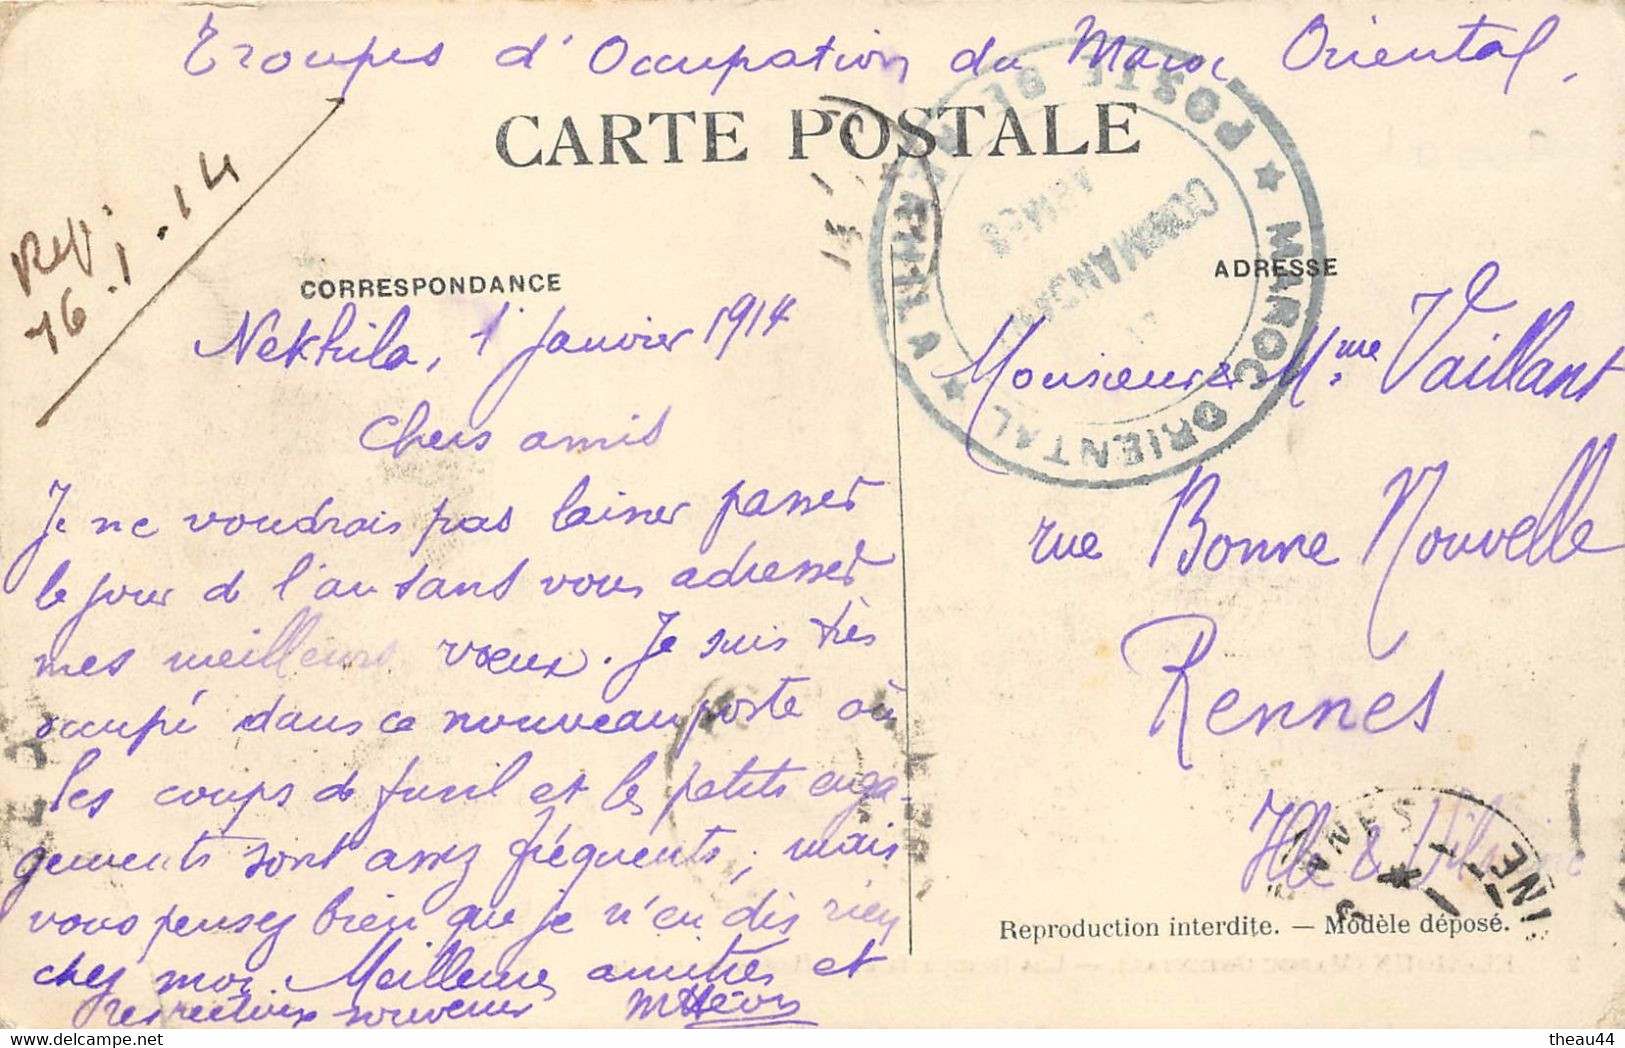 Troupes d'Occupation du Maroc Oriental.
CARTE POSTALE
Rép.
16.1.14
CORRESPONDANCE
ADRESSE
MAROC ORIENTAL ★ POSTE DE ★
COMMANDANT
ARMES
Nekhila, 1 Janvier 1914
Chers amis
Je ne voudrais pas laisser passer
le jour de l'an sans vous adresser
mes meilleurs vœux. Je suis très
occupé dans ce nouveau poste où
les coups de fusil et les petits enga-
gements sont assez fréquents, mais
vous pensez bien que je n'en dis rien
chez moi. Meilleures amitiés et
respectueux souvenirs
Monsieur & Mme Vaillant
rue Bonne Nouvelle
Rennes
Ille & Vilaine
Reproduction interdite. — Modèle déposé.
theau44